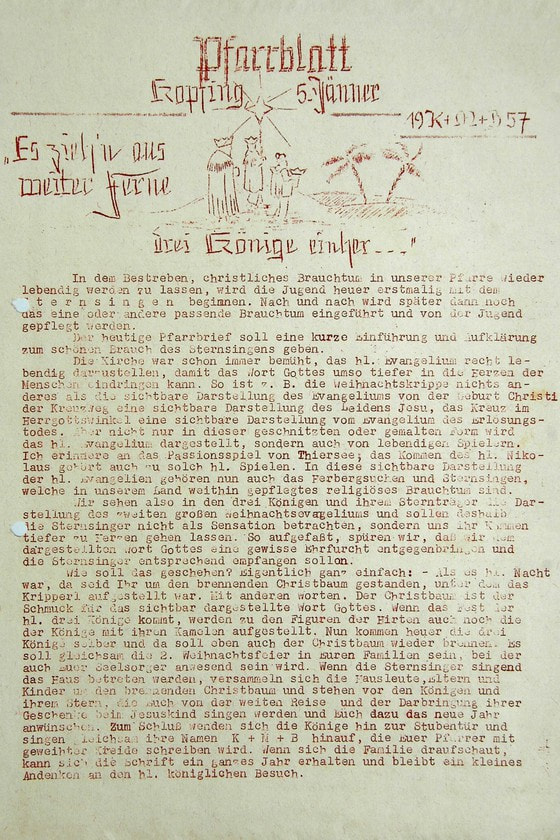 Pfarrblatt
Kopfing 5. Jänner
19 K+M+B 57
„Es zieh'n aus
weiter Ferne
drei Könige einher...."
In dem Bestreben, christliches Brauchtum in unserer Pfarre wieder
lebendig werden zu lassen, wird die Jugend heuer erstmalig mit dem
Sternsingen beginnen. Nach und nach wird später dann noch
das eine oder andere passende Brauchtum eingeführt und von der Jugend
gepflegt werden.
Der heutige Pfarrbrief soll eine kurze Einführung und Aufklärung
zum schönen Brauch des Sternsingens geben.
Die Kirche war schon immer bemüht, das hl. Evangelium recht le-
bendig darzustellen, damit das Wort Gottes umso tiefer in die Herzen der
Menschen eindringen kann. So ist z. B. die Weihnachtskrippe nichts an-
deres als die sichtbare Darstellung des Evangeliums von der Geburt Christi
der Kreuzweg eine sichtbare Darstellung des Leidens Jesu, das Kreuz im
Herrgottswinkel eine sichtbare Darstellung vom Evangelium des Erlösungs-
todes. Aber nicht nur in dieser geschnitzten oder gemalten Form wird
das hl. Evangelium dargestellt, sondern auch von lebendigen Spielern.
Ich erinnere an das Passionsspiel von Thiersee, das Kommen des hl. Niko-
laus gehört auch zu solch hl. Spielen. In diese sichtbare Darstellung
der hl. Evangelien gehören nun auch das Herbergsuchen und Sternsingen,
welche in unserem Land weithin gepflegtes religiöses Brauchtum sind.
Wir sehen also in den drei Königen und ihrem Sternträger die Dar-
stellung des zweiten großen Weihnachtsevangeliums und sollen deshalb
die Sternsinger nicht als Sensation betrachten, sondern uns ihr Kommen
tiefer zu Herzen gehen lassen. So aufgefaßt, spüren wir, daß wir dem
dargestellten Wort Gottes eine gewisse Ehrfurcht entgegenbringen und
die Sternsinger entsprechend empfangen sollen.
Wie soll das geschehen? Eigentlich ganz einfach: - Als es hl. Nacht
war, da seid Ihr um den brennenden Christbaum gestanden, unter dem das
Kripperl aufgestellt war. Mit anderen worten. Der Christbaum ist der
Schmuck für das sichtbar dargestellte Wort Gottes. Wenn das Fest der
hl. drei Könige kommt, werden zu den Figuren der Hirten auch noch die
der Könige mit ihren Kamelen aufgestellt. Nun kommen heuer die drei
Könige selber und da soll eben auch der Christbaum wieder brennen. Es
soll gleichsam die 2. Weihnachtsfeier in Euren Familien sein, bei der
auch Euer Seelsorger anwesend sein wird. Wenn die Sternsinger singend
das Haus betreten werden, versammeln sich die Hausleute, Eltern und
Kinder um den brennenden Christbaum und stehen vor den Königen und
ihrem Stern, die Euch von der weiten Reise und der Darbringung ihrer
Geschenke beim Jesuskind singen werden und Euch dazu das neue Jahr
anwünschen. Zum Schluß wenden sich die Könige hin zur Stubentür und
singen gleichsam ihre Namen K + M + B hinauf, die Euer Pfarrer mit
geweihter Kreide schreiben wird. Wenn sich die Familie draufschaut,
kann sich die Schrift ein ganzes Jahr erhalten und bleibt ein kleines
Andenken an den hl. königlichen Besuch.